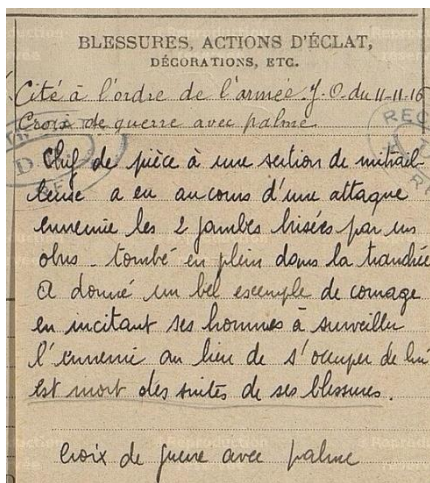 BLESSURES, ACTIONS D'ÉCLAT,
DÉCORATIONS, ETC.
Cité à l'ordre de l'armée J.O. du 11-11-16
Croix de guerre avec palme
Chef de pièce à une section de mitrail-
leuse a eu au cours d'une attaque
ennemie les 2 jambes brisées par un
obus - tombé en plein dans la tranchée
A donné un bel exemple de courage
en incitant ses hommes à surveiller
l'ennemi au lieu de s'occuper de lui
est mort des suites de ses blessures.
Croix de guerre avec palme